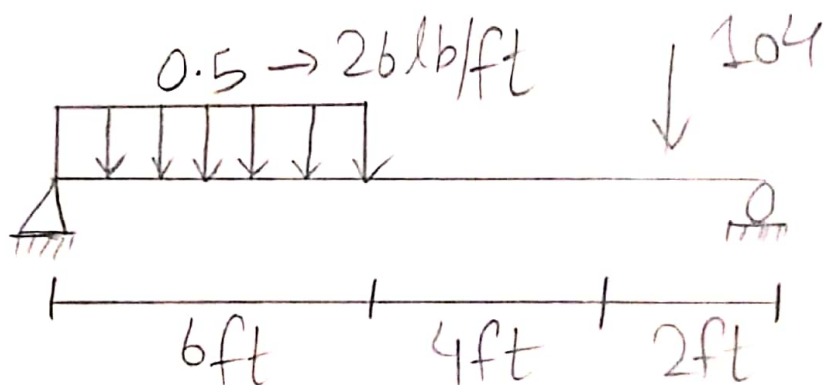 0.5 → 26 lb/ft
104
6ft 4ft 2ft